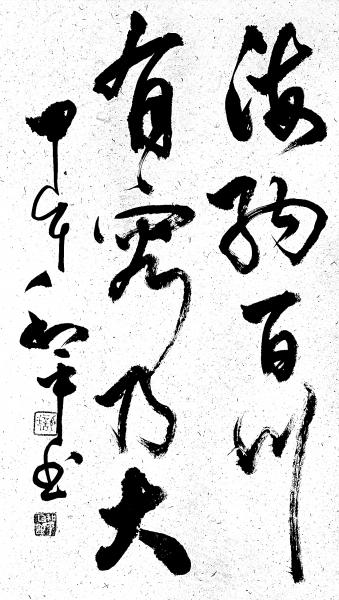 海纳百川
有容乃大
甲午 和平书